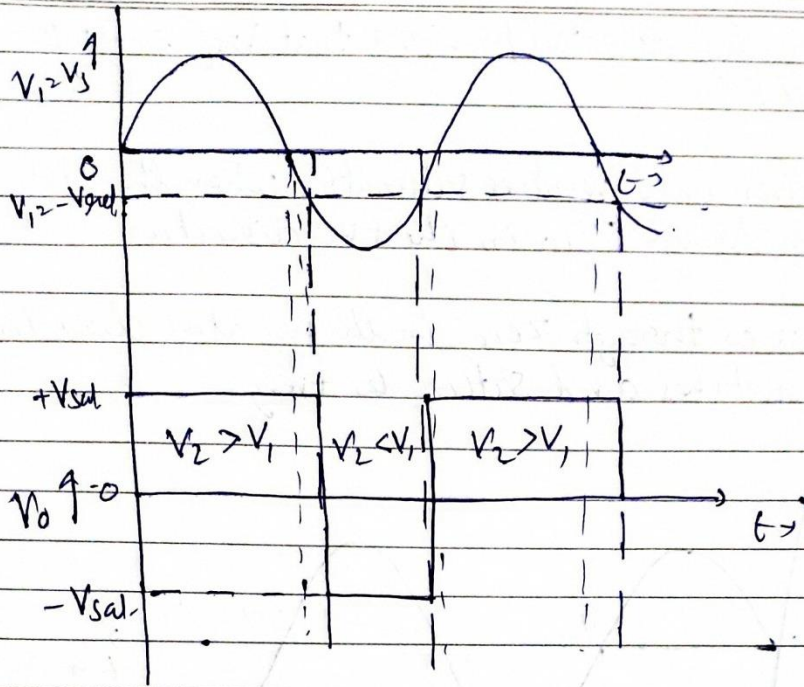 V₁=Vs ↑
0
t→
V₁=-Vref
+Vsat
V₂>V₁ V₂<V₁ V₂>V₁
V₀ ↑ 0
t→
-Vsat